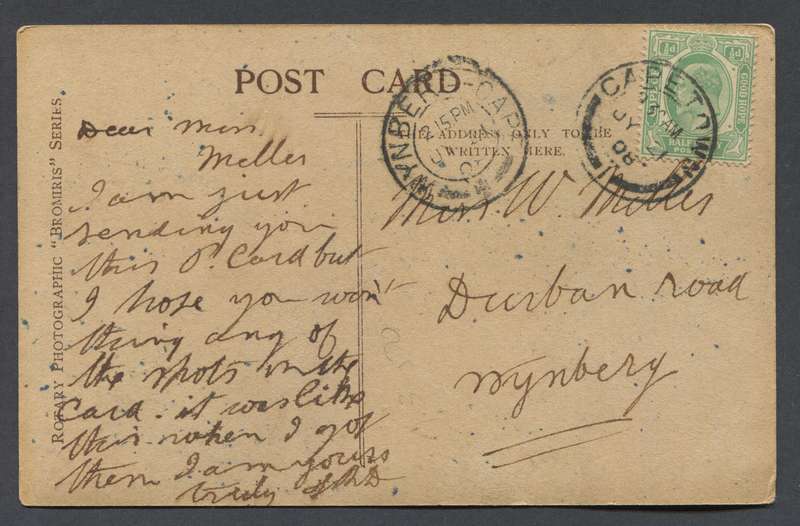 POST CARD
ROTARY PHOTOGRAPHIC "BROMIRIS" SERIES.
THE ADDRESS ONLY TO BE
WRITTEN HERE.
WYNBERG-CAPE
15 PM
CAPE TOWN
JY
08
GOOD HOPE
HALF
½d ½d
Dear Miss
Melles
I am just
sending you
this P. Card but
I hope you won't
thing any of
the spots on the
Card. it was like
this when I got
them I am yours
truly
Miss W. Melles
Durban road
Wynberg